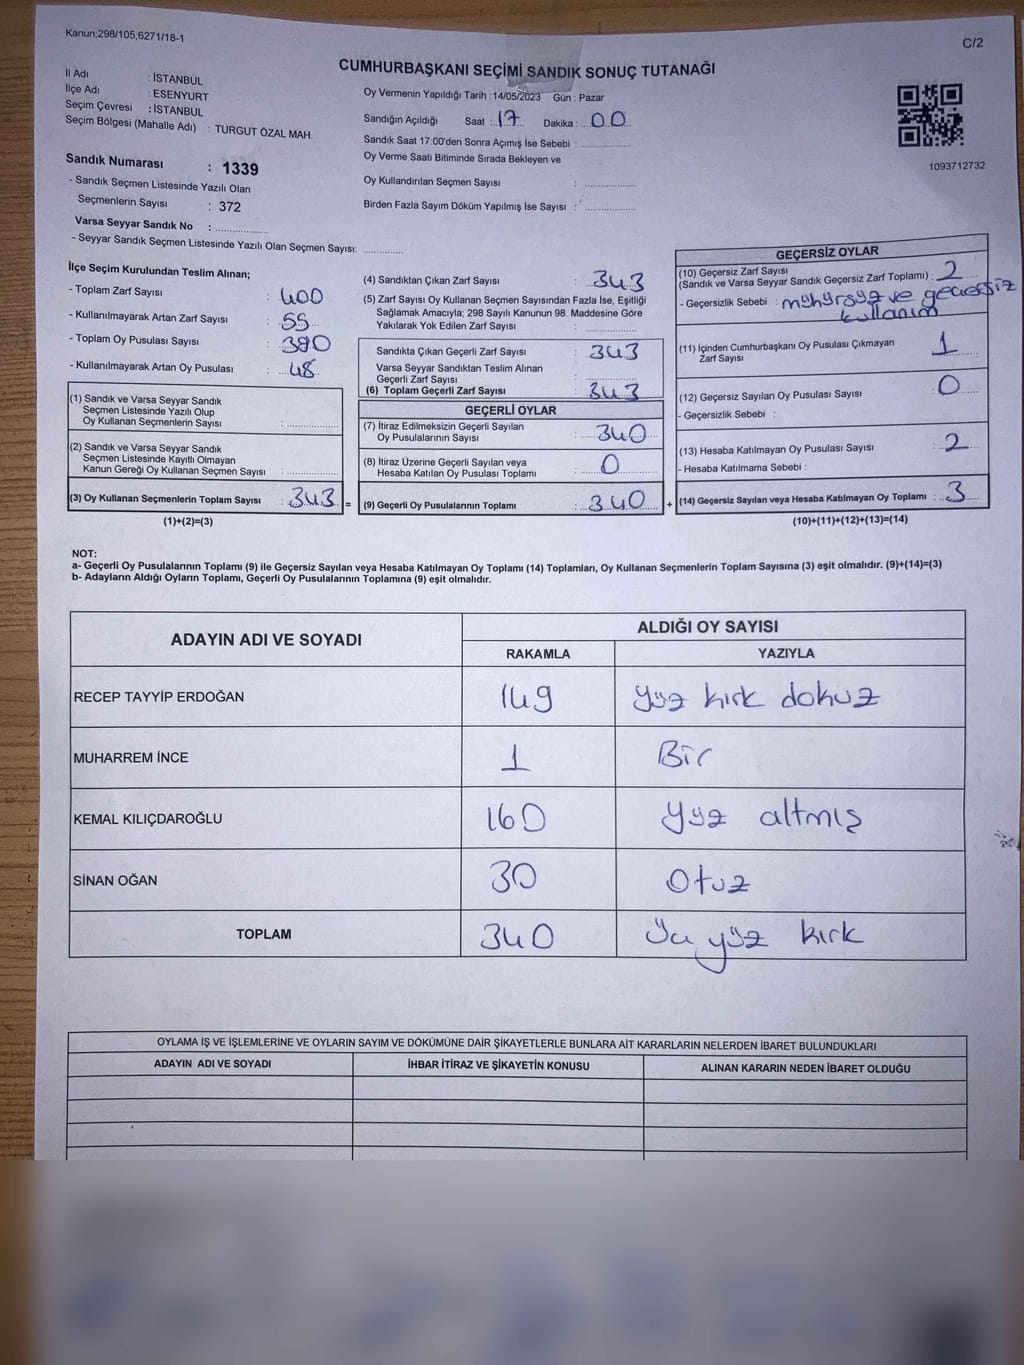 Kanun;298/105;6271/18-1
C/2
CUMHURBAŞKANI SEÇİMİ SANDIK SONUÇ TUTANAĞI
İl Adı : İSTANBUL
İlçe Adı : ESENYURT
Seçim Çevresi : İSTANBUL
Seçim Bölgesi (Mahalle Adı) : TURGUT ÖZAL MAH.
Oy Vermenin Yapıldığı Tarih : 14/05/2023 Gün : Pazar
Sandığın Açıldığı Saat : 17 Dakika : 00
Sandık Saat 17:00'den Sonra Açımış İse Sebebi :
Oy Verme Saati Bitiminde Sırada Bekleyen ve
Oy Kullandırılan Seçmen Sayısı :
Birden Fazla Sayım Döküm Yapılmış İse Sayısı :
1093712732
Sandık Numarası : 1339
- Sandık Seçmen Listesinde Yazılı Olan
Seçmenlerin Sayısı : 372
Varsa Seyyar Sandık No :
- Seyyar Sandık Seçmen Listesinde Yazılı Olan Seçmen Sayısı:
İlçe Seçim Kurulundan Teslim Alınan;
- Toplam Zarf Sayısı : 400
- Kullanılmayarak Artan Zarf Sayısı : 55
- Toplam Oy Pusulası Sayısı : 390
- Kullanılmayarak Artan Oy Pusulası : 48
(1) Sandık ve Varsa Seyyar Sandık
Seçmen Listesinde Yazılı Olup
Oy Kullanan Seçmenlerin Sayısı :
(2) Sandık ve Varsa Seyyar Sandık
Seçmen Listesinde Kayıtlı Olmayan
Kanun Gereği Oy Kullanan Seçmen Sayısı :
(3) Oy Kullanan Seçmenlerin Toplam Sayısı : 343 =
(1)+(2)=(3)
(4) Sandıktan Çıkan Zarf Sayısı : 343
(5) Zarf Sayısı Oy Kullanan Seçmen Sayısından Fazla İse, Eşitliği
Sağlamak Amacıyla; 298 Sayılı Kanunun 98. Maddesine Göre
Yakılarak Yok Edilen Zarf Sayısı :
Sandıkta Çıkan Geçerli Zarf Sayısı : 343
Varsa Seyyar Sandıktan Teslim Alınan
Geçerli Zarf Sayısı :
(6) Toplam Geçerli Zarf Sayısı : 343
GEÇERLİ OYLAR
(7) İtiraz Edilmeksizin Geçerli Sayılan
Oy Pusulalarının Sayısı : 340
(8) İtiraz Üzerine Geçerli Sayılan veya
Hesaba Katılan Oy Pusulası Toplamı : 0
(9) Geçerli Oy Pusulalarının Toplamı : 340 +
GEÇERSİZ OYLAR
(10) Geçersiz Zarf Sayısı
(Sandık ve Varsa Seyyar Sandık Geçersiz Zarf Toplamı) : 2
- Geçersizlik Sebebi : mühürsüz ve geçersiz
kullanım
(11) İçinden Cumhurbaşkanı Oy Pusulası Çıkmayan
Zarf Sayısı : 1
(12) Geçersiz Sayılan Oy Pusulası Sayısı : 0
- Geçersizlik Sebebi :
(13) Hesaba Katılmayan Oy Pusulası Sayısı : 2
- Hesaba Katılmama Sebebi :
(14) Geçersiz Sayılan veya Hesaba Katılmayan Oy Toplamı : 3
(10)+(11)+(12)+(13)=(14)
NOT:
a- Geçerli Oy Pusulalarının Toplamı (9) ile Geçersiz Sayılan veya Hesaba Katılmayan Oy Toplamı (14) Toplamları, Oy Kullanan Seçmenlerin Toplam Sayısına (3) eşit olmalıdır. (9)+(14)=(3)
b- Adayların Aldığı Oyların Toplamı, Geçerli Oy Pusulalarının Toplamına (9) eşit olmalıdır.
ADAYIN ADI VE SOYADI
ALDIĞI OY SAYISI
RAKAMLA YAZIYLA
RECEP TAYYİP ERDOĞAN 149 yüz kırk dokuz
MUHARREM İNCE 1 Bir
KEMAL KILIÇDAROĞLU 160 yüz altmış
SİNAN OĞAN 30 Otuz
TOPLAM 340 Üç yüz kırk
OYLAMA İŞ VE İŞLEMLERİNE VE OYLARIN SAYIM VE DÖKÜMÜNE DAİR ŞİKAYETLERLE BUNLARA AİT KARARLARIN NELERDEN İBARET BULUNDUKLARI
ADAYIN ADI VE SOYADI İHBAR İTİRAZ VE ŞİKAYETİN KONUSU ALINAN KARARIN NEDEN İBARET OLDUĞU